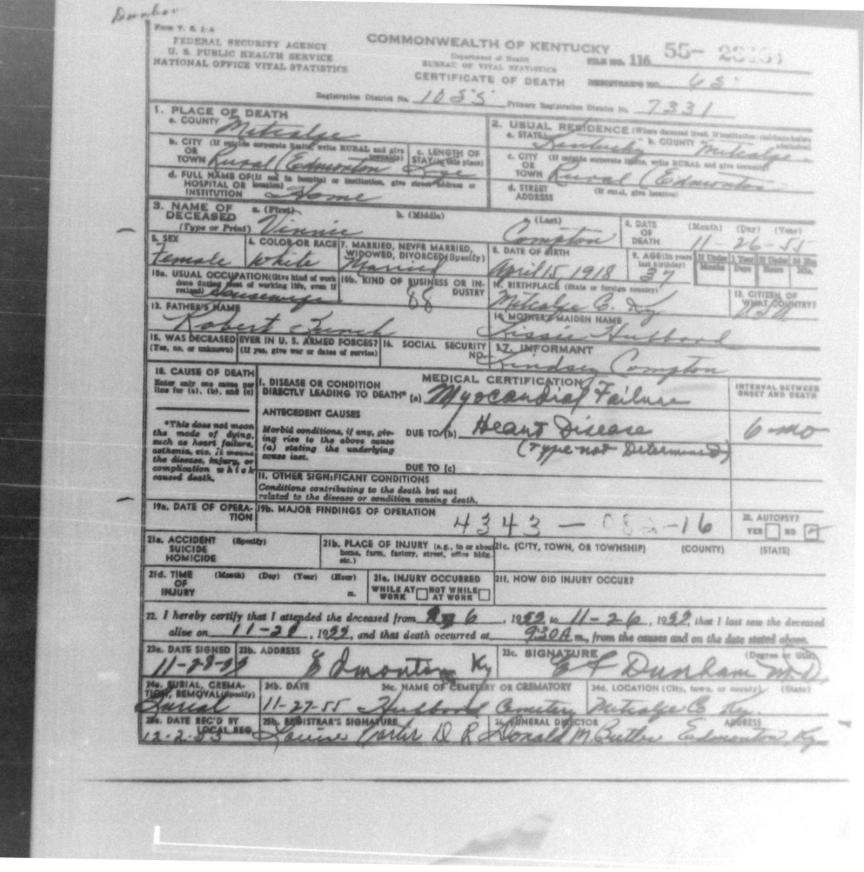 Dunbar
Form V. S. 1-A
FEDERAL SECURITY AGENCY
U. S. PUBLIC HEALTH SERVICE
NATIONAL OFFICE VITAL STATISTICS
COMMONWEALTH OF KENTUCKY
Department of Health
BUREAU OF VITAL STATISTICS
CERTIFICATE OF DEATH
FILE NO. 116 55-
REGISTRAR'S NO. 65
Registration District No. 1055 Primary Registration District No. 7331
1. PLACE OF DEATH
a. COUNTY Metcalfe
b. CITY (If outside corporate limits, write RURAL and give
OR
TOWN Rural (Edmonton
c. LENGTH OF
STAY (in this place)
d. FULL NAME OF (If not in hospital or institution, give street address or
HOSPITAL OR location)
INSTITUTION Home
2. USUAL RESIDENCE (Where deceased lived. If institution: residence before
a. STATE Kentucky b. COUNTY Metcalfe
c. CITY (If outside corporate limits, write RURAL and give
OR
TOWN Rural (Edmonton
d. STREET (If rural, give location)
ADDRESS
3. NAME OF a. (First) b. (Middle) c. (Last)
DECEASED
(Type or Print) Vinnie Compton
4. DATE (Month) (Day) (Year)
OF
DEATH 11-26-55
5. SEX
Female
6. COLOR OR RACE
White
7. MARRIED, NEVER MARRIED,
WIDOWED, DIVORCED (Specify)
Married
8. DATE OF BIRTH
April 15, 1918
9. AGE (In years
last birthday)
37
If Under 1 Year
Months Days
If Under 24 Hrs
Hours Min.
10a. USUAL OCCUPATION (Give kind of work
done during most of working life, even if
retired) Housewife
10b. KIND OF BUSINESS OR IN-
DUSTRY
88
11. BIRTHPLACE (State or foreign country)
Metcalfe Co. Ky
12. CITIZEN OF
WHAT COUNTRY?
USA
13. FATHER'S NAME
Robert
14. MOTHER'S MAIDEN NAME
Lissie Hubbard
15. WAS DECEASED EVER IN U. S. ARMED FORCES?
(Yes, no, or unknown) (If yes, give war or dates of service)
16. SOCIAL SECURITY
NO.
17. INFORMANT
Lindsey Compton
18. CAUSE OF DEATH
Enter only one cause per
line for (a), (b), and (c)
*This does not mean
the mode of dying,
such as heart failure,
asthenia, etc. It means
the disease, injury, or
complication which
caused death.
MEDICAL CERTIFICATION
I. DISEASE OR CONDITION
DIRECTLY LEADING TO DEATH* (a) Myocardial Failure
ANTECEDENT CAUSES
Morbid conditions, if any, giv-
ing rise to the above cause
(a) stating the underlying
cause last.
DUE TO (b) Heart Disease
(Type not Determined)
DUE TO (c)
II. OTHER SIGNIFICANT CONDITIONS
Conditions contributing to the death but not
related to the disease or condition causing death.
INTERVAL BETWEEN
ONSET AND DEATH
6 mo
19a. DATE OF OPERA-
TION
19b. MAJOR FINDINGS OF OPERATION
4343 - 082-16
20. AUTOPSY?
YES NO
21a. ACCIDENT (Specify)
SUICIDE
HOMICIDE
21b. PLACE OF INJURY (e.g., in or about
home, farm, factory, street, office bldg.
etc.)
21c. (CITY, TOWN, OR TOWNSHIP) (COUNTY) (STATE)
21d. TIME (Month) (Day) (Year) (Hour)
OF
INJURY m.
21e. INJURY OCCURRED
WHILE AT NOT WHILE
WORK AT WORK
21f. HOW DID INJURY OCCUR?
22. I hereby certify that I attended the deceased from 6, 19 to 11-26, 19, that I last saw the deceased
alive on 11-2, 19, and that death occurred at 9:30A m., from the causes and on the date stated above.
23a. DATE SIGNED
11-28-
23b. ADDRESS
Edmonton Ky
23c. SIGNATURE (Degree or title)
Dunham M.D.
24a. BURIAL, CREMA-
TION, REMOVAL (Specify)
Burial
24b. DATE
11-27-55
24c. NAME OF CEMETERY OR CREMATORY
Hubbard Cemetery
24d. LOCATION (City, town, or county) (State)
Metcalfe Co Ky.
25a. DATE REC'D BY
LOCAL REG.
12-2-55
25b. REGISTRAR'S SIGNATURE
Louise Porter D R
26. FUNERAL DIRECTOR ADDRESS
Donald M Butler Edmonton Ky